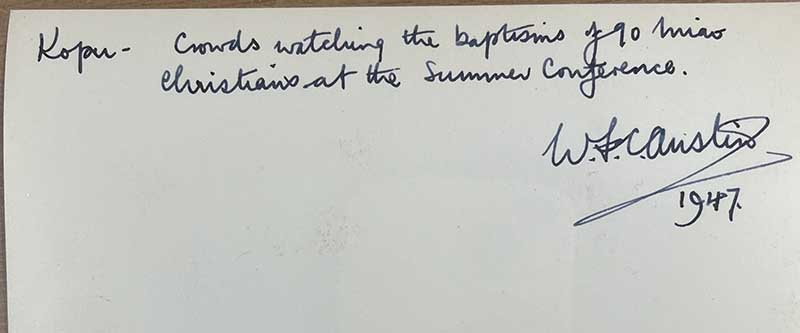 Kopu - Crowds watching the baptisms of 90 Miao
Christians at the Summer Conference.
W.F.C. Austin
1947.